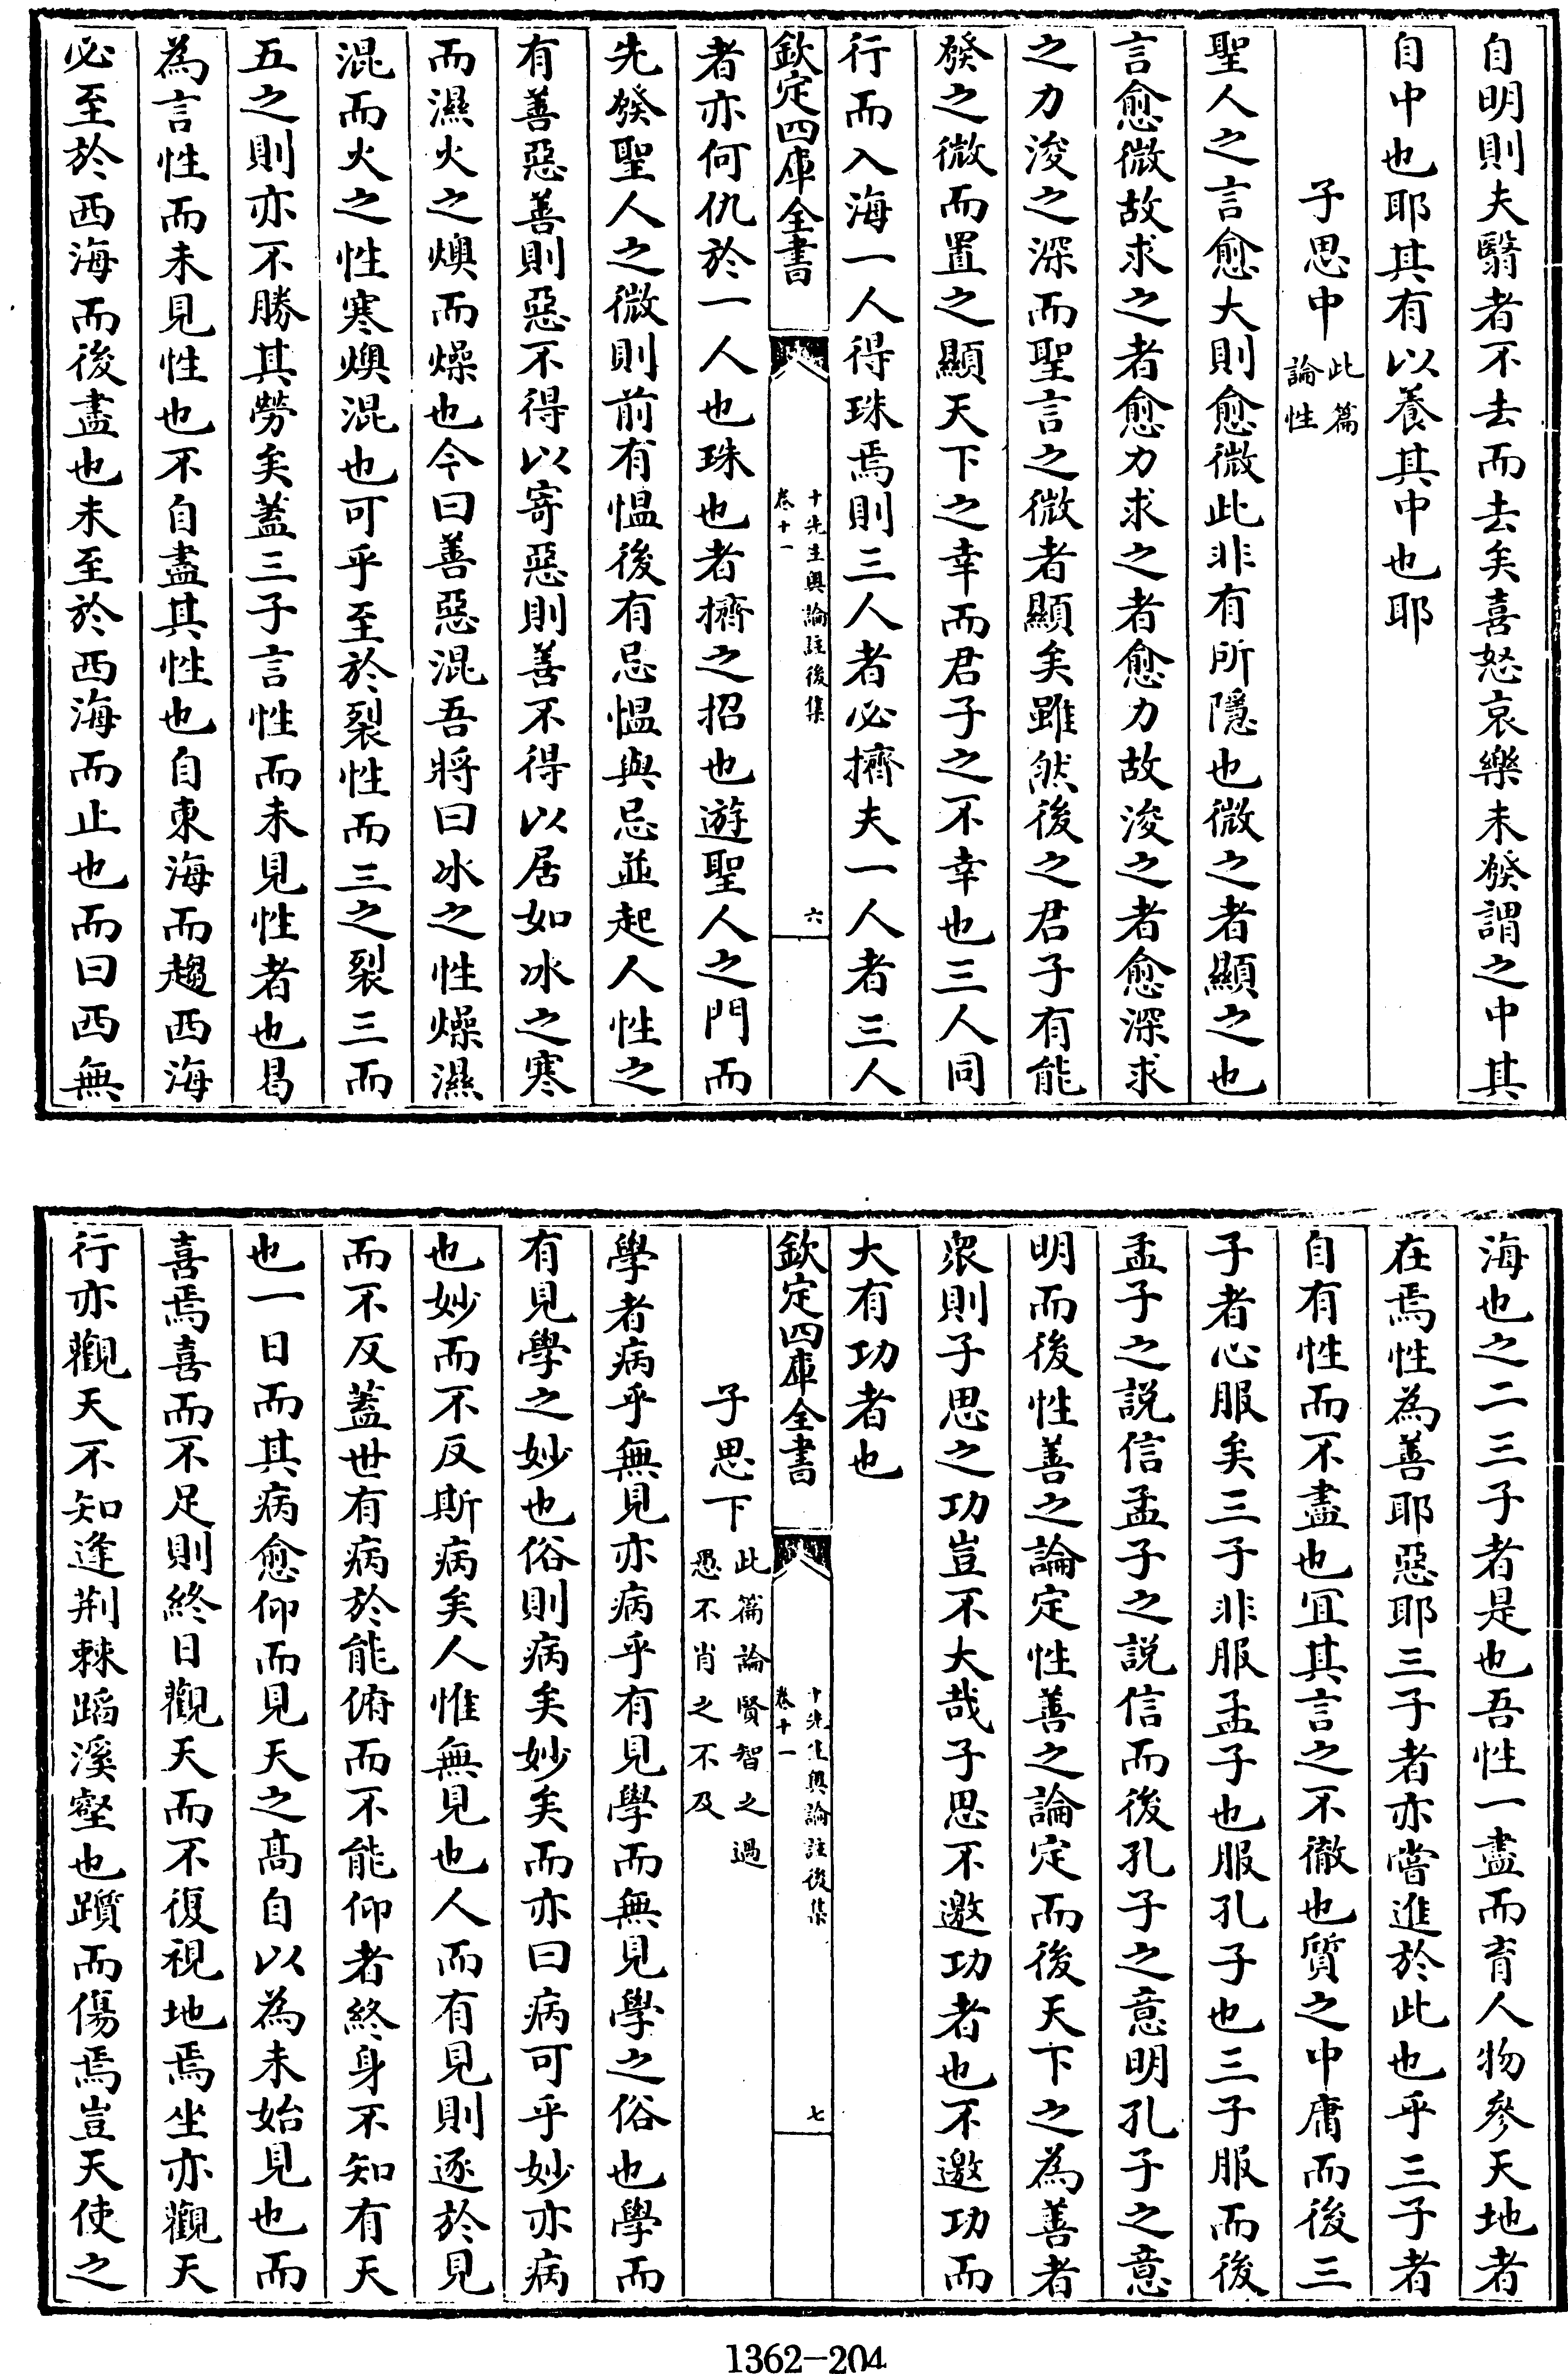 自明則夫翳者不去而去矣喜怒哀樂未發謂之中其
自中也耶其有以養其中也耶
子思中此篇論性
聖人之言愈大則愈微此非有所隱也微之者顯之也
言愈微故求之者愈力求之者愈力故浚之者愈深求
之力浚之深而聖言之微者顯矣雖然後之君子有能
發之微而置之顯天下之幸而君子之不幸也三人同
行而入海一人得珠焉則三人者必擠夫一人者三人
欽定四庫全書 十先生奧論註後集 卷十一 六
者亦何仇於一人也珠也者擠之招也遊聖人之門而
先發聖人之微則前有愠後有忌愠與忌並起人性之
有善惡善則惡不得以寄惡則善不得以居如冰之寒
而濕火之燠而燥也今曰善惡混吾將曰冰之性燥濕
混而火之性寒燠混也可乎至於裂性而三之裂三而
五之則亦不勝其勞矣蓋三子言性而未見性者也曷
為言性而未見性也不自盡其性也自東海而趨西海
必至於西海而後盡也未至於西海而止也而曰西無
海也之二三子者是也吾性一盡而育人物參天地者
在焉性為善耶惡耶三子者亦嘗進於此也乎三子者
自有性而不盡也宜其言之不徹也質之中庸而後三
子者心服矣三子非服孟子也服孔子也三子服而後
孟子之説信孟子之説信而後孔子之意明孔子之意
明而後性善之論定性善之論定而後天下之為善者
衆則子思之功豈不大哉子思不邀功者也不邀功而
大有功者也
欽定四庫全書 十先生奧論註後集 卷十一 七
子思下此篇論賢智之過愚不肖之不及
學者病乎無見亦病乎有見學而無見學之俗也學而
有見學之妙也俗則病矣妙矣而亦曰病可乎妙亦病
也妙而不反斯病矣人惟無見也人而有見則逐於見
而不反蓋世有病於能俯而不能仰者終身不知有天
也一日而其病愈仰而見天之髙自以為未始見也而
喜焉喜而不足則終日觀天而不復視地焉坐亦觀天
行亦觀天不知逢荆棘蹈溪壑也躓而傷焉豈天使之
1362-204